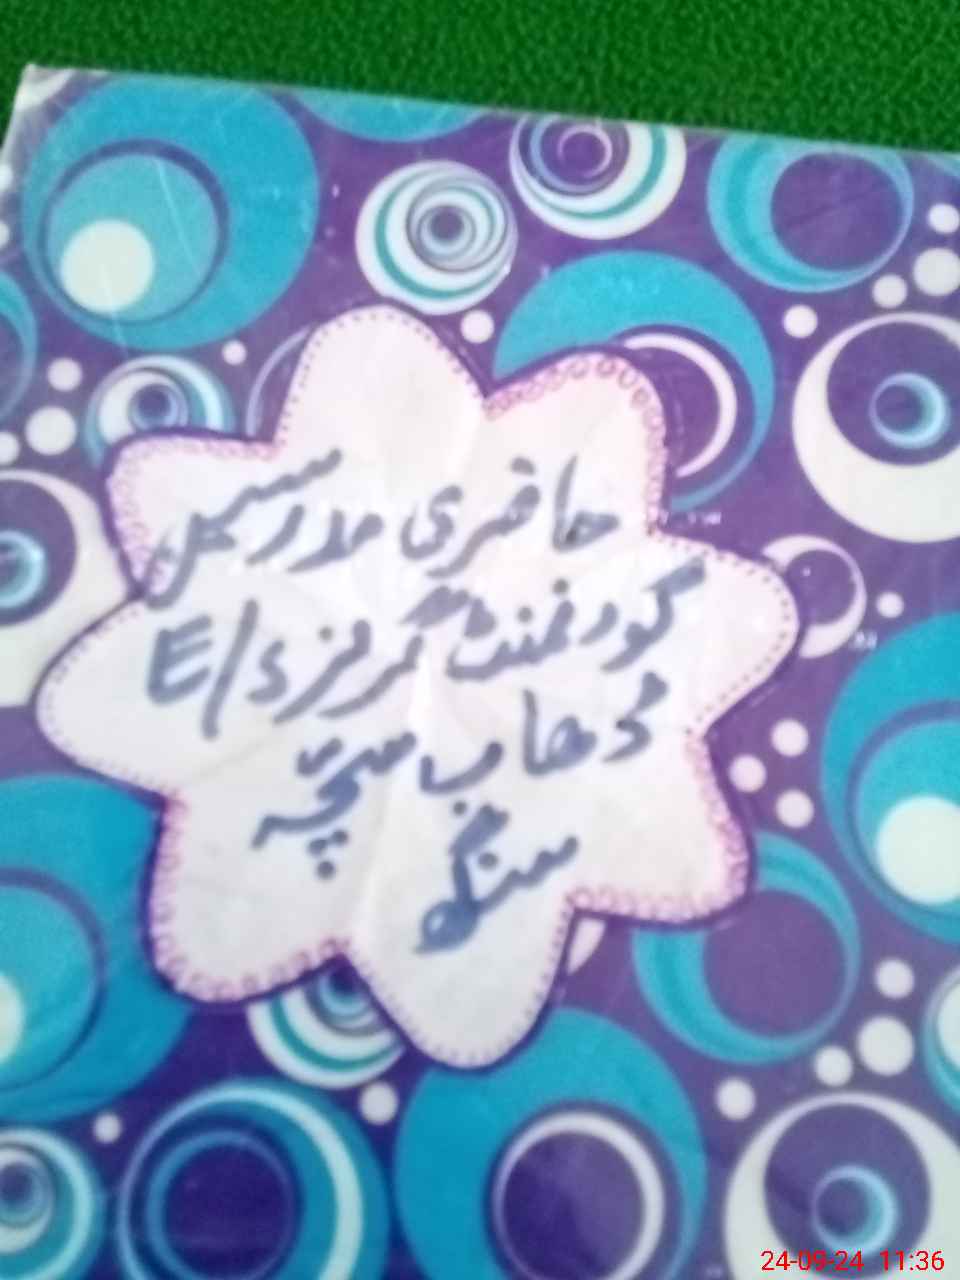 حاضری مدرسین
گورنمنٹ گرلز E/S
ڈھاب سچہ
سنگھ
24-09-24 11:36